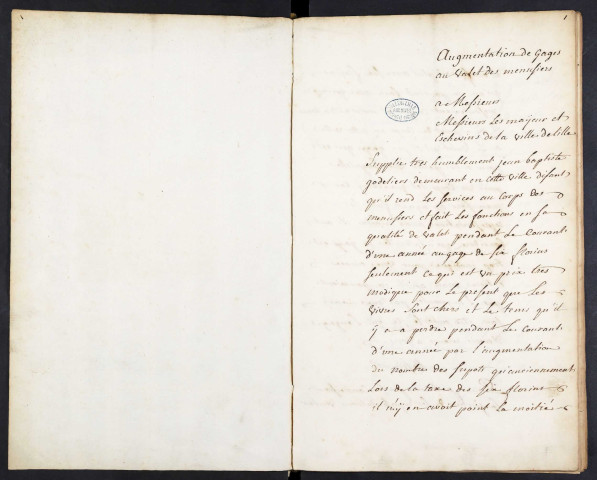 1
Augmentation de Gages
au Valet des menusiers
a Messieurs
Messieurs Les majeur et
Eschevins de la ville de Lille
Supplie tres humblement jean baptiste
godeliers demeurant en cette ville disant
qu'il rend Les services au corps des
menusiers et fait Les fonctions en sa
qualité de valet pendant Le Courant
d'une année au gage de six florins
seulement ce qui est un prix tres
modique pour Le present que Les
vivres sont chers et Le tems qu'il
y a a perdre pendant Le courant
d'une année par l'augmentation
du nombre des supots qu'anciennement
Lors de la taxe des six florins
il n'y en avoit point la moitié